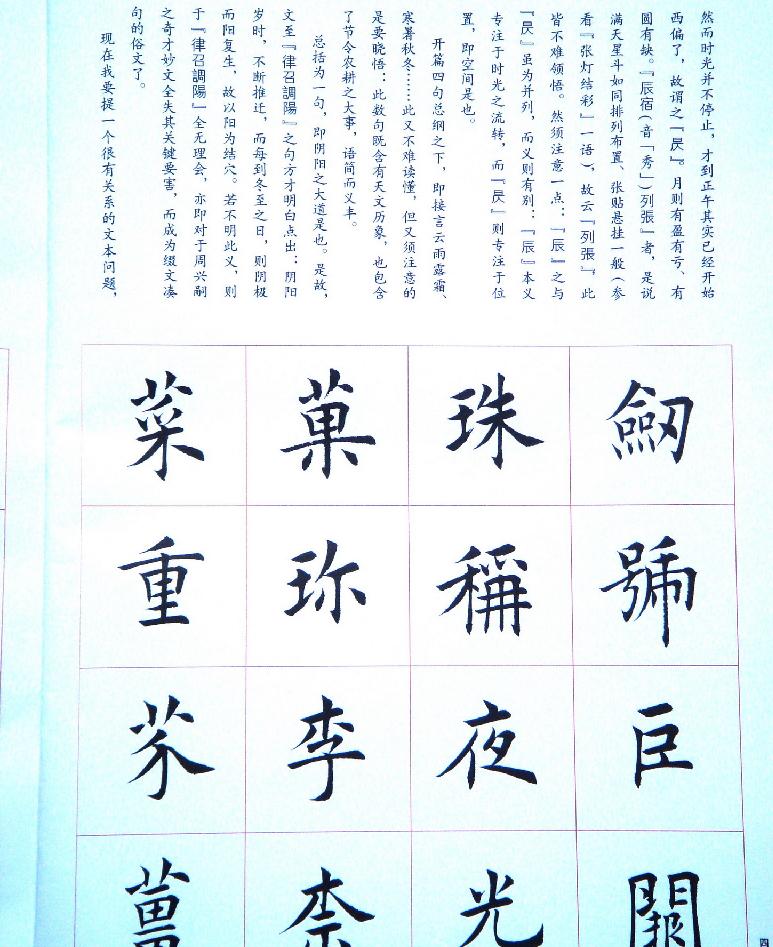 然而时光并不停止，才到正午其实已经开始
西偏了，故谓之『昃』。月则有盈有亏、有
圆有缺。『辰宿（音「秀」）列張』者，是说
满天星斗如同排列布置、张贴悬挂一般（参
看『张灯结彩』一语），故云『列張』。此
皆不难领悟。然须注意一点：『辰』之与
『昃』虽为并列，而义则有别：『辰』本义
专注于时光之流转，而『昃』则专注于位
置，即空间是也。
开篇四句总纲之下，即接言云雨露霜、
寒暑秋冬……此又不难读懂，但又须注意的
是要晓悟：此数句既含有天文历象，也包含
了节令农耕之大事，语简而义丰。
总括为一句，即阴阳之大道是也。是故，
文至『律召調陽』之句方才明白点出：阴阳
岁时，不断推迁，而每到冬至之日，则阴极
而阳复生，故以阳为结穴。若不明此义，则
于『律召調陽』全无理会，亦即对于周兴嗣
之奇才妙文全失其关键要害，而成为缀文凑
句的俗文了。
现在我要提一个很有关系的文本问题，
劒號巨闕
珠稱夜光
菓珍李柰
菜重芥薑